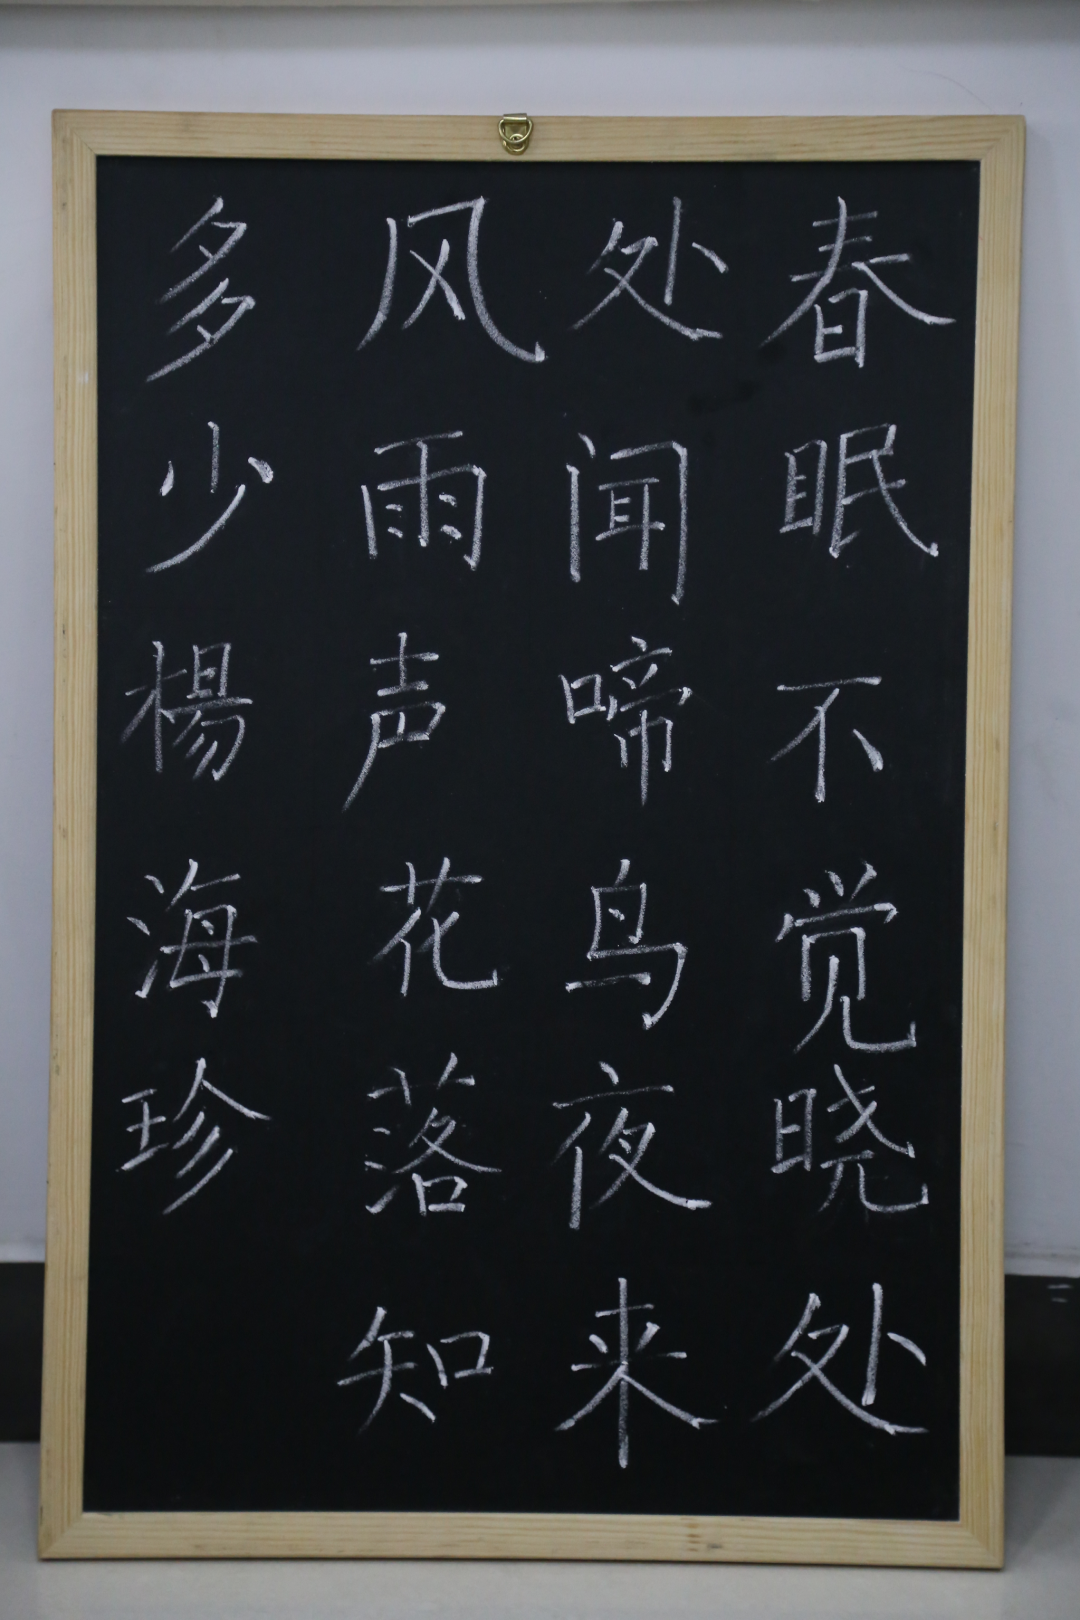 春眠不觉晓处
处闻啼鸟夜来
风雨声花落知
多少楊海珍